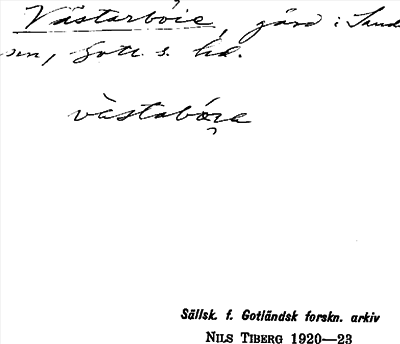 Västarböie, gård i Sund
sen, Gotl. s. hd.
västabóęe
Sällsk. f. Gotländsk forskn. arkiv
NILS TIBERG 1920—23